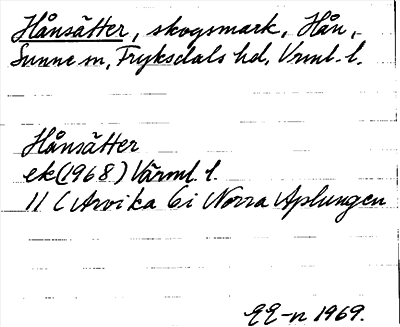 Hånsätter, skogsmark, Hån,
Sunne sn, Fryksdals hd, Vrml. l.
Hånsätter
ek (1968) Värml. l.
11 C Arvika 6i Norra Aplungen
EE-n 1969.